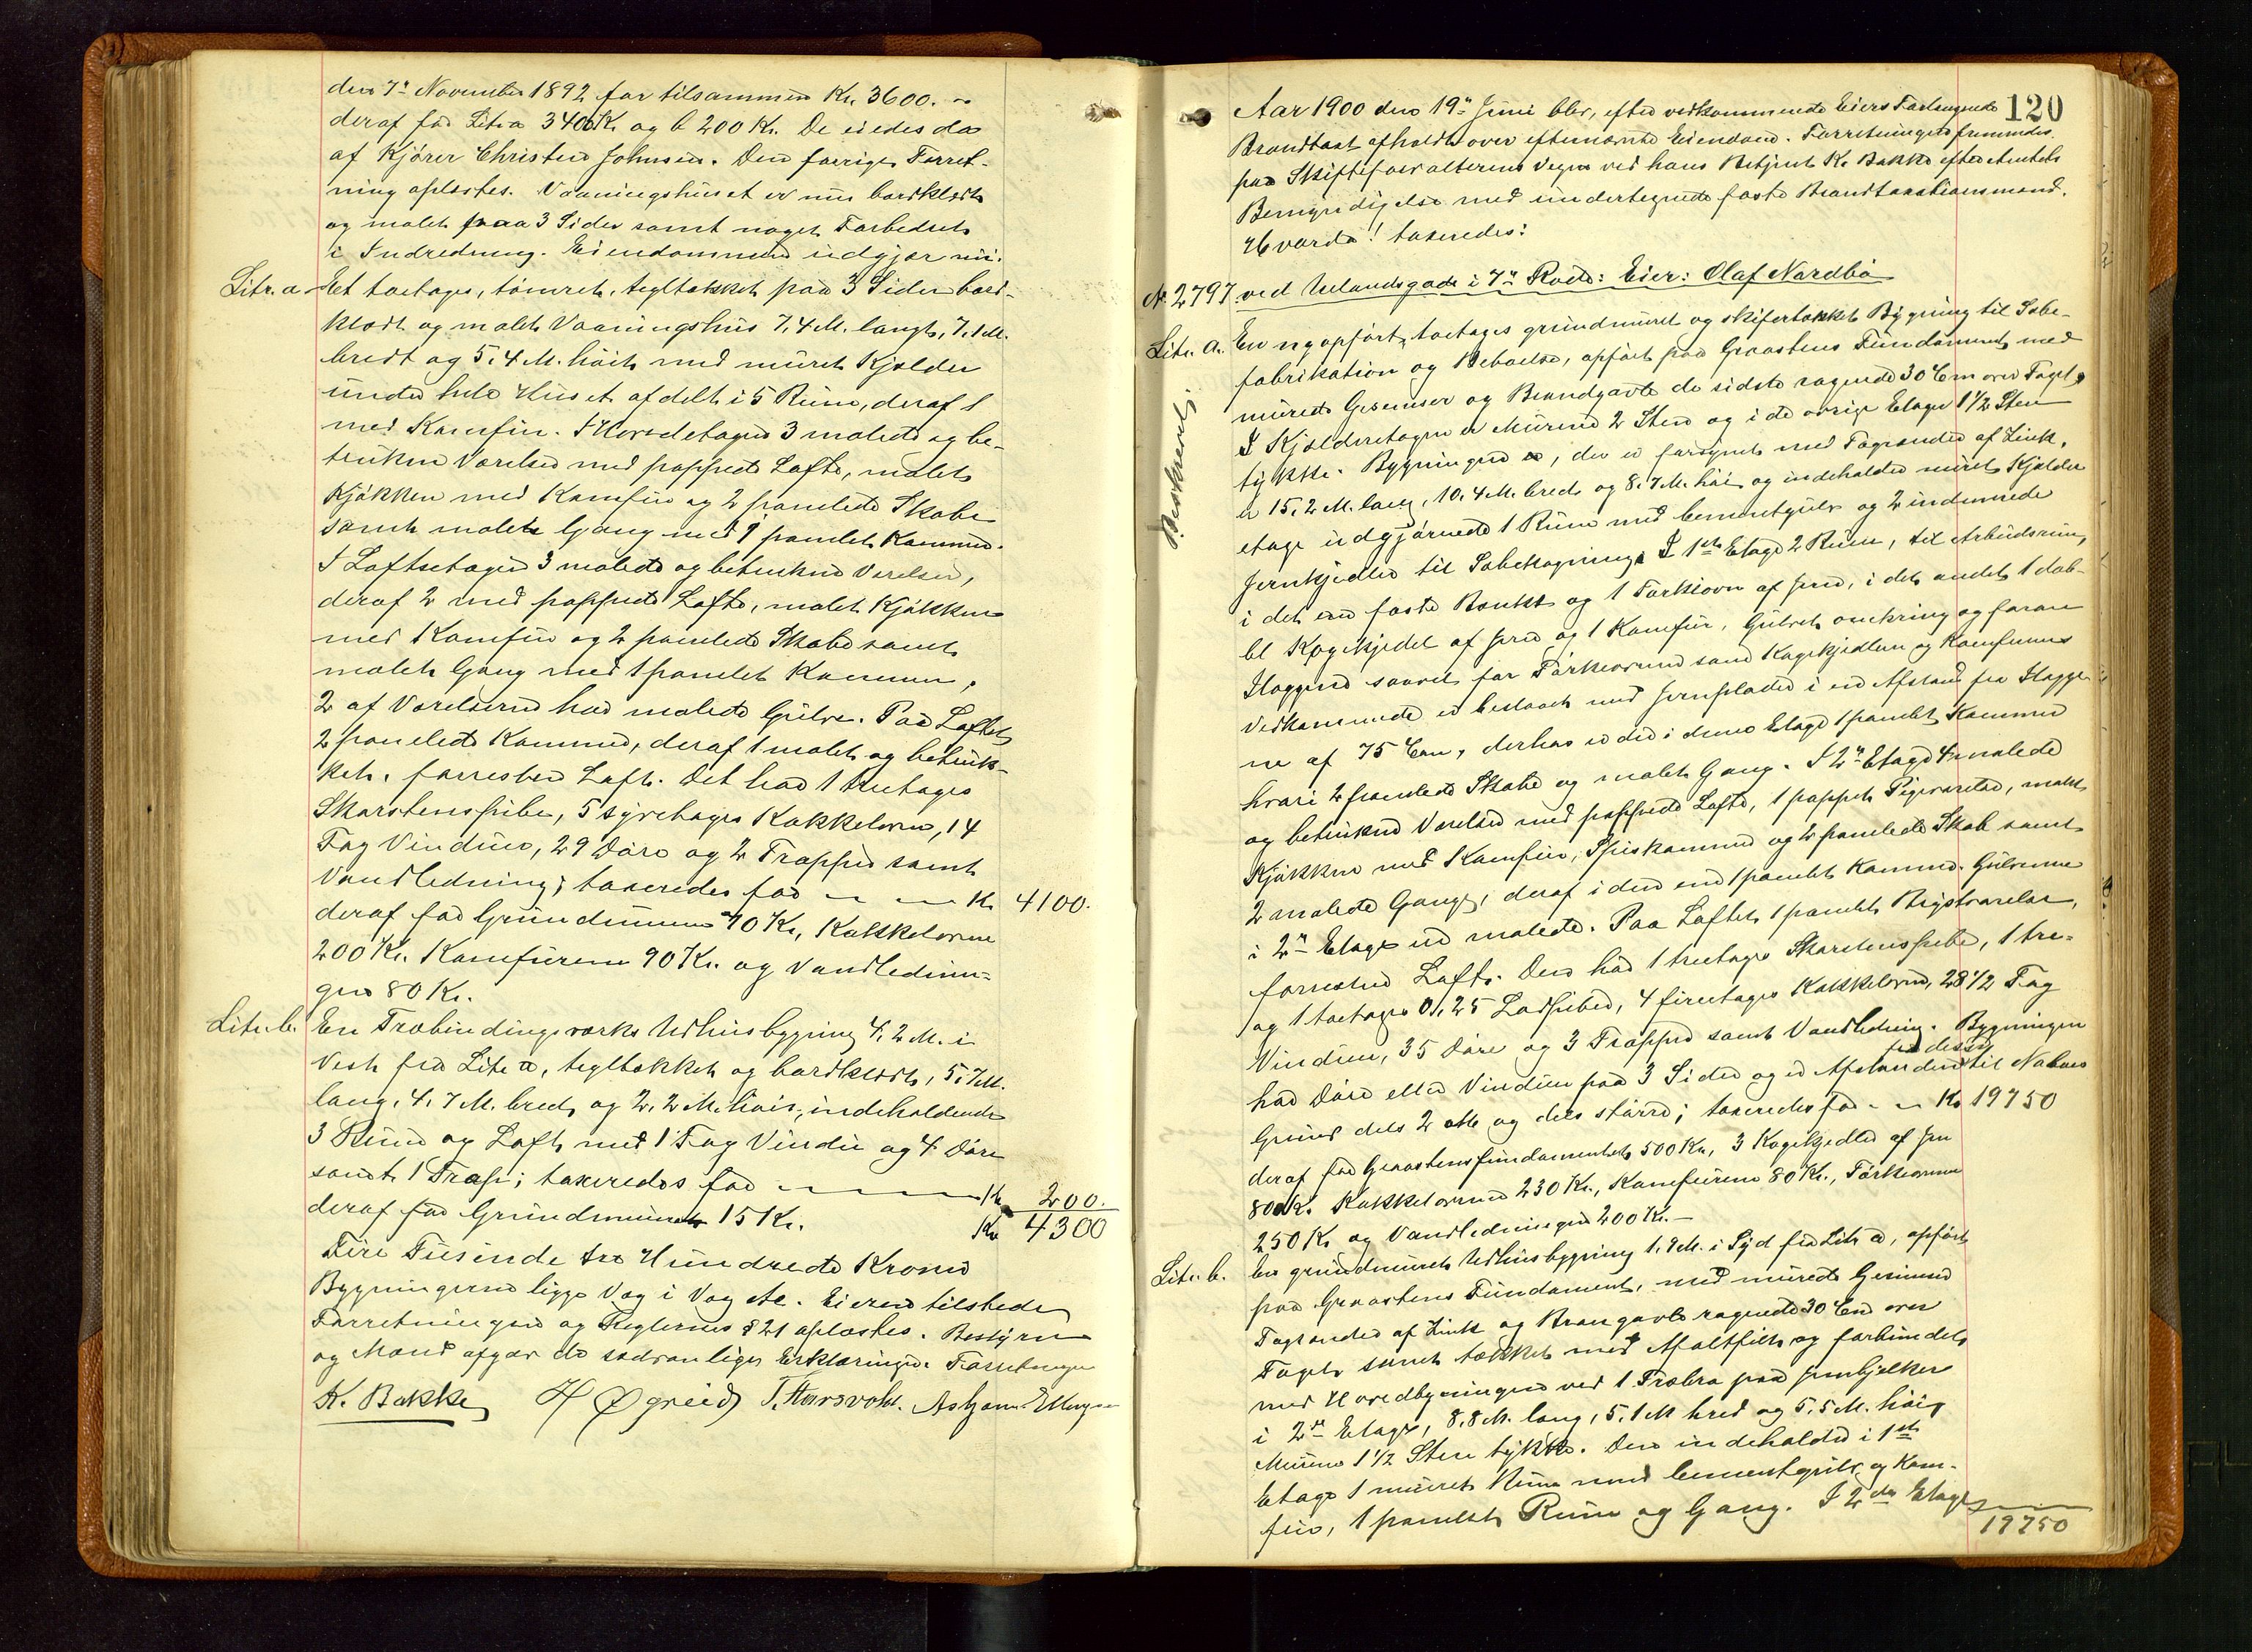 den 7de November 1892 for tilsammen Kr. 3600. -
deraf for Litr a 3400 Kr. og b 200 Kr. De eiedes da
af Kjörer Christen Johnsen. Den forrige Forret-
ning oplæstes. Vaaningshuset er nu bordklædt
og malet paa 3 Sider samt noget Forbedret
i Indredning. Eiendommen udgjør nu:
Litr. a Et toetages, tömret, tegltækket paa 3 Sider bord-
klædt og malet Vaaningshus 7,4 M. langt, 7,1 M.
bredt og 5,4 M. höit med muret Kjelder
under hele Huset afdelt i 5 Rum, deraf 1
med Komfur. I Hovedetagen 3 malede og be-
trukne Værelser med pappede Lofte, malet
Kjökken med Komfur og 2 panelede Skabe
samt malet Gang med 1 panelet Kammer.
I Loftsetagen 3 malede og betrukne Værelser,
deraf 2 med pappede Lofte, malet Kjökken
med Komfur og 2 panelede Skabe samt
malet Gang med 1 panelet Kammer,
2 af Værelserne har malede Gulve. Paa Loftet
2 panelede Kammer, deraf 1 malet og betruk-
ket, forresten Loft. Det har 1 treetages
Skorstenspibe, 5 syvetages Kakkelovne, 14
Fag Vinduer, 29 Döre og 2 Trapper samt
Vandledning; taxeredes for - - Kr. 4100.
deraf for Grundmuren 70 Kr., Kakkelovnene
200 Kr. Komfurene 90 Kr. og Vandlednin-
gen 80 Kr.
Litr. b. En Træbindingsværks Udhusbygning 4,2 M. i
Vest fra Litr a, tegltækket og bordklædt, 5,7 M.
lang, 4,7 M. bred og 2,2 M. höi, indeholdende
3 Rum og Loft med 1 Fag Vindu og 4 Döre
samt 1 Trap; taxeredes for - - - Kr. 200.
deraf for Grundmuren 15 Kr. Kr. 4300
Fire Tusinde tre Hundrede Kroner
Bygningerne ligge Væg i Væg etc. Eieren tilstede
Forretningen og Reglernes § 21 oplæstes. Bestyrer
og Mænd afgav de sædvanlige Erklæringer. Forretningen
K. Bakke H Øgreid T. Aarsvold. Asbjörn Ellingsen
120
Aar 1900 den 19de Juni blev, efter vedkommende Eiers Forlangende
Brandtaxt afholdt over efternævnte Eiendom. Forretningen fremmedes
paa Skifteforvalterens Vegne ved hans Betjent K. Bakke efter Amtets
Bemyndigelse med undertegnede faste Brandtaxationsmænd.
Hvorda! taxeredes:
No 2797 ved Uelandsgade i 7de Rode: Eier: Olaf Nordbö
Litr. a. En nyopfört, toetages grundmuret og skifertækket Bygning til Sæbe-
fabrikation og Beboelse, opfört paa Graastens Fundament med
murede Gesimser og Brandgavle de sidste ragende 30 Cm over Taget,
I Kjelderetagen er Murene 2 Sten og i de övrige Etager 1 1/2 Sten
tykke. Bygningen, der er forsynet med Tagrender af Zink,
er 15,2 M. lang, 10,4 M. bred og 8,7 M. höi og indeholder muret Kjelder-
etage udgjörende 1 Rum med Cementgulv og 2 indmurede
Jernkjedler til Sæbekogning. I 1ste Etage 2 Rum, til Arbeidsrum,
i det ene faste Bænke og 1 Törkeovn af Jern, i det andet 1 dob-
belt Kogekjedel af Jern og 1 Komfur, Gulvet omkring og foran
Ilaggene saavel for Törkeovnen som Kogekjedlen og Komfuren
vedkommende er beslaaet med Jernplader i en Afstand fra Ilagge-
ne af 75 Cm, derhos er der i denne Etage 1 panelet Kammer
hvori 2 panelede Skabe og malet Gang. I 2den Etage 4 malede
og betrukne Værelser med pappede Lofte, 1 pappet Pigeværelse, malet
Kjökken med Komfur, Spiskammer og 2 panelede Skab samt
2 malede Gange, deraf i den ene 1 panelet Kammer. Gulvene
i 2den Etage er malede. Paa Loftet 1 panelet Rigsværelse,
forresten Loft. Den har 1 treetages Skorstenspibe, 1 tre-
og 1 toetages 0,25 Lodpiber, 4 fireetages Kakkelovne, 28 1/2 Fag
Vinduer, 35 Döre og 3 Trapper samt Vandledning. Bygningen
har Döre eller Vinduer paa 3 Sider og er Afstanden fra disse til Naboens
Grund dels 2 M. og dels större; taxeredes for - - Kr. 19750
deraf for Graastensfundamentet 500 Kr., 3 Kogekjedler af Jern
800 Kr. Kakkelovnene 230 Kr., Komfurene 80 Kr., Törkeovnen
250 Kr og Vandledningen 200 Kr. -
Litr. b. En grundmuret Udhusbygning 1,8 M. i Syd fra Litr a, opfört
paa Graastens Fundament, med murede Gesimser
Tagrender af Zink og Brangavle ragende 30 Cm over
Taget samt tækket med Asfaltfilt og forbundet
med Hovedbygningen ved 1 Træbro paa Jernbjelker
i 2den Etage, 8,8 M. lang, 5,1 M bred og 5,5 M. höi,
Murene 1 1/2 Sten tykke. Den indeholder i 1ste
Etage 1 muret Rum med Cementgulv og Kom-
fur, 1 panelet Rum og Gang. I 2den Etage
19750